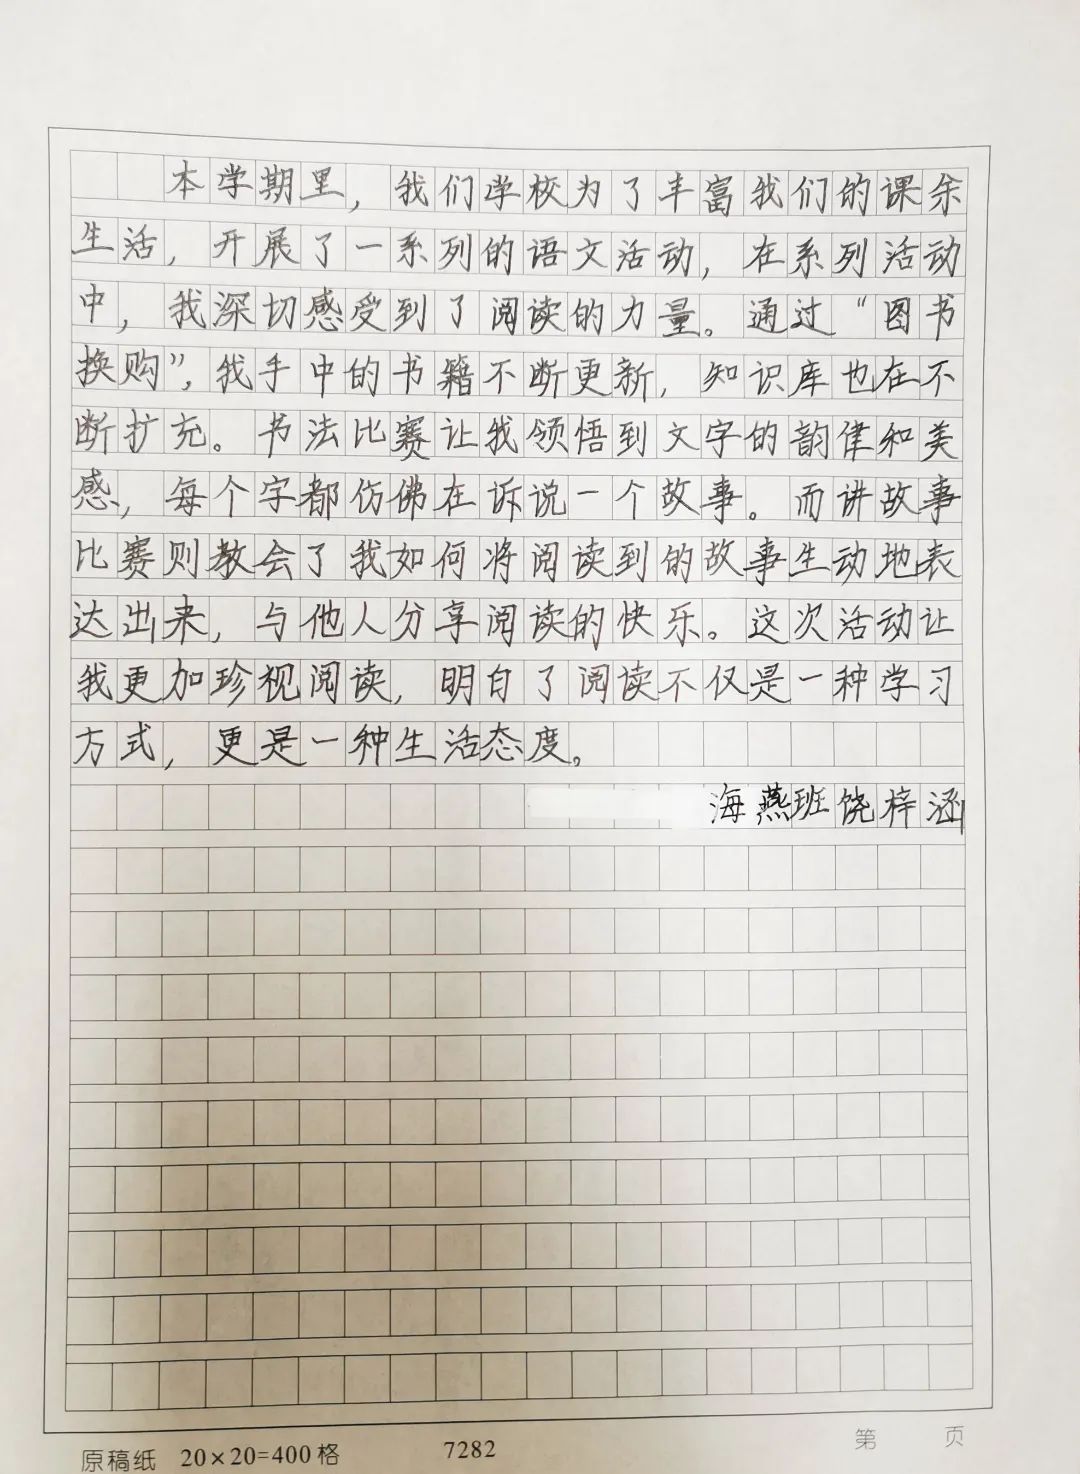 本学期里，我们学校为了丰富我们的课余
生活，开展了一系列的语文活动，在系列活动
中，我深切感受到了阅读的力量。通过“图书
换购”，我手中的书籍不断更新，知识库也在不
断扩充。书法比赛让我领悟到文字的韵律和美
感，每个字都仿佛在诉说一个故事。而讲故事
比赛则教会了我如何将阅读到的故事生动地表
达出来，与他人分享阅读的快乐。这次活动让
我更加珍视阅读，明白了阅读不仅是一种学习
方式，更是一种生活态度。
海燕班饶梓涵
原稿纸 20×20=400格 7282 第 页